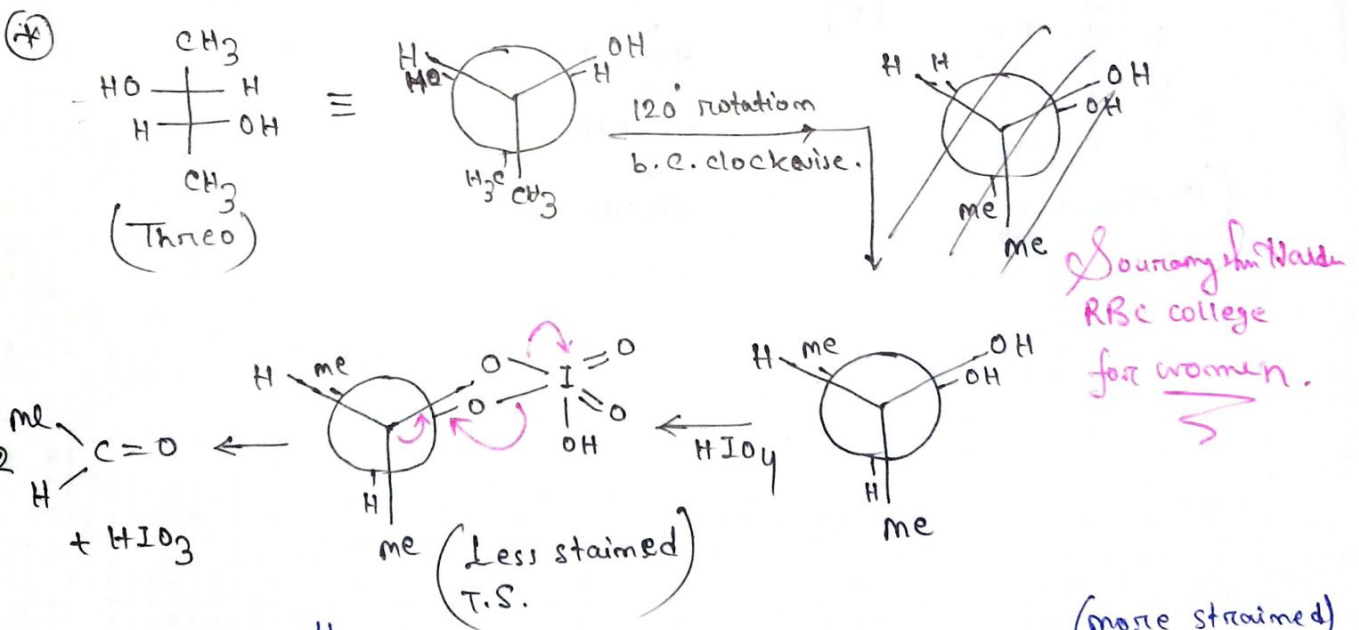 *
CH3
HO H
H OH
CH3
(Threo)
≡
H OH
HO H
H3C CH3
120° rotation
b.c. clockwise.
H H OH
OH
me
me
RBC college
for women.
H me OH
OH
H
me
HIO4
H me O I O
O O
OH
H
me
(Less stained
T.S.)
me
2 C=O
H
+ HIO3
(more strained)